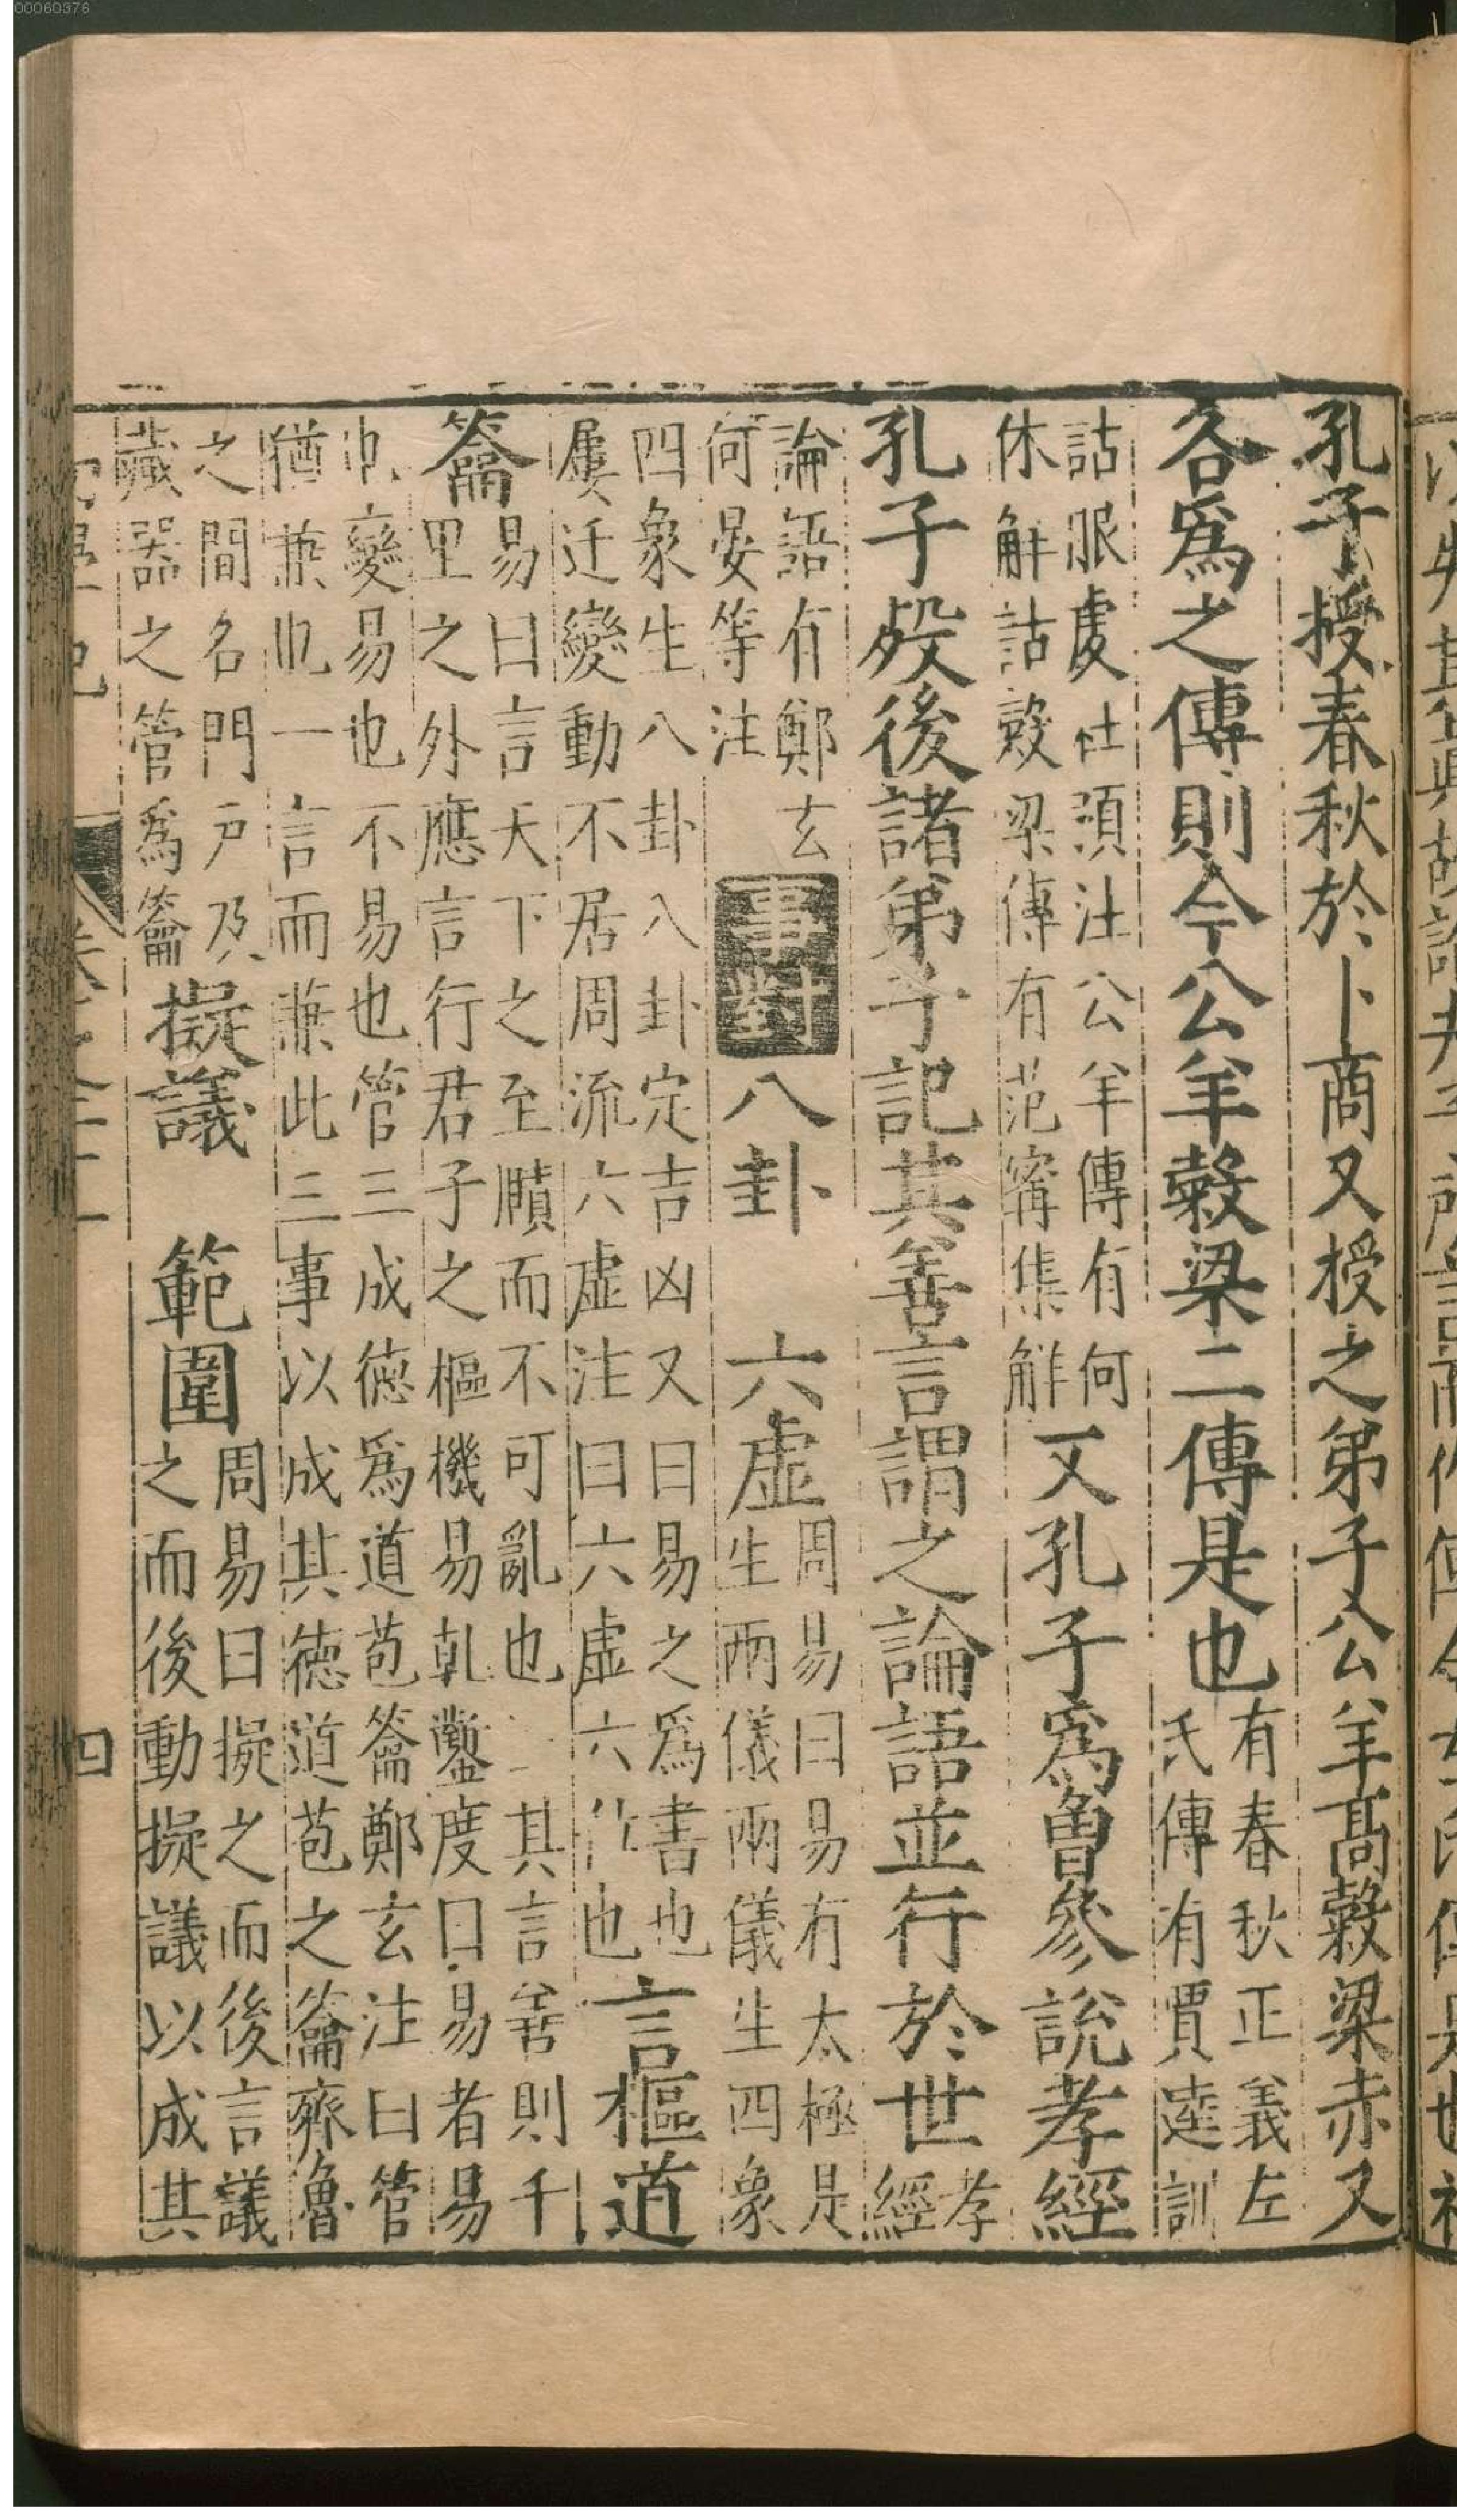 孔子授春秋於卜商又授之弟子公羊高糓梁赤又
各爲之傳則今公羊糓梁二傳是也
有春秋正義左
氏傳有賈逵訓
詁服虔杜湏注公羊傳有何
休解詁糓梁傳有范寗集解
又孔子爲魯參說孝經
孔子歿後諸弟子記其善言謂之論語並行於世
孝
經
論語有鄭玄
何晏等注
事對
八卦 六虛
周易曰易有太極是
生兩儀兩儀生四象
四象生八卦八卦定吉凶又曰易之爲書也
屢迁變動不居周流六虛注曰六虛六位也
言樞道
籥
易曰言天下之至賾而不可亂也 其言善則千
里之外應言行君子之樞機易乹鑿度曰易者易
也變易也不易也管三成徳爲道苞籥鄭玄注曰管
猶兼也一言而兼此三事以成其徳道苞之籥齊魯
之間名門户及
藏器之管爲籥
擬議 範圍
周易曰擬之而後言議
之而後動擬議以成其
四
00060376